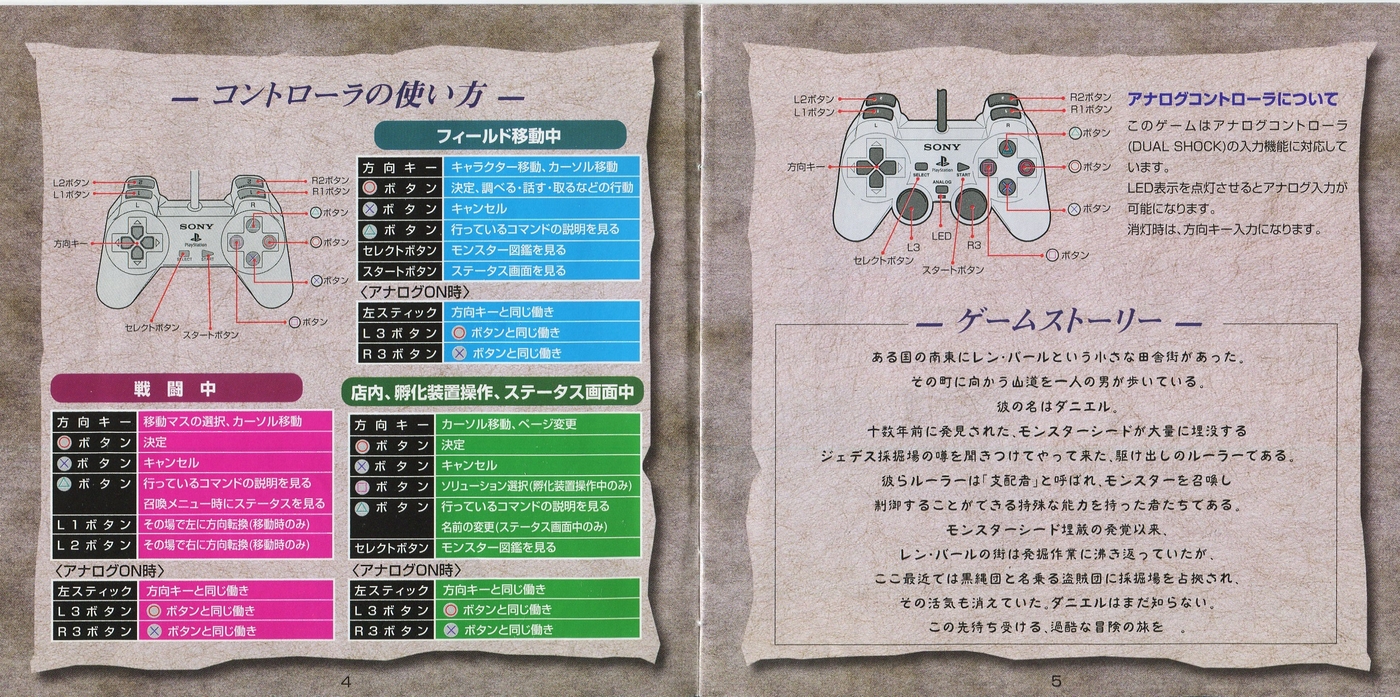 ― コントローラの使い方 ―
L2ボタン
L1ボタン
方向キー
R2ボタン
R1ボタン
△ボタン
○ボタン
×ボタン
□ボタン
セレクトボタン
スタートボタン
L
R
SONY
PlayStation
SELECT
フィールド移動中
方向キー キャラクター移動、カーソル移動
○ボタン 決定、調べる・話す・取るなどの行動
×ボタン キャンセル
△ボタン 行っているコマンドの説明を見る
セレクトボタン モンスター図鑑を見る
スタートボタン ステータス画面を見る
〈アナログON時〉
左スティック 方向キーと同じ働き
L3ボタン ○ボタンと同じ働き
R3ボタン ×ボタンと同じ働き
戦闘中
方向キー 移動マスの選択、カーソル移動
○ボタン 決定
×ボタン キャンセル
△ボタン 行っているコマンドの説明を見る
召喚メニュー時にステータスを見る
L1ボタン その場で左に方向転換(移動時のみ)
L2ボタン その場で右に方向転換(移動時のみ)
〈アナログON時〉
左スティック 方向キーと同じ働き
L3ボタン ○ボタンと同じ働き
R3ボタン ×ボタンと同じ働き
店内、孵化装置操作、ステータス画面中
方向キー カーソル移動、ページ変更
○ボタン 決定
×ボタン キャンセル
□ボタン ソリューション選択(孵化装置操作中のみ)
△ボタン 行っているコマンドの説明を見る
名前の変更(ステータス画面中のみ)
セレクトボタン モンスター図鑑を見る
〈アナログON時〉
左スティック 方向キーと同じ働き
L3ボタン ○ボタンと同じ働き
R3ボタン ×ボタンと同じ働き
4
L2ボタン
L1ボタン
方向キー
R2ボタン
R1ボタン
△ボタン
○ボタン
×ボタン
□ボタン
L
R
SONY
PlayStation
SELECT
START
ANALOG
L3
LED
R3
セレクトボタン
スタートボタン
アナログコントローラについて
このゲームはアナログコントローラ
(DUAL SHOCK)の入力機能に対応して
います。
LED表示を点灯させるとアナログ入力が
可能になります。
消灯時は、方向キー入力になります。
― ゲームストーリー ―
ある国の南東にレン・バールという小さな田舎街があった。
その町に向かう山道を一人の男が歩いている。
彼の名はダニエル。
十数年前に発見された、モンスターシードが大量に埋没する
ジェデス採掘場の噂を聞きつけてやって来た、駆け出しのルーラーである。
彼らルーラーは「支配者」と呼ばれ、モンスターを召喚し
制御することができる特殊な能力を持った者たちである。
モンスターシード埋蔵の発覚以来、
レン・バールの街は発掘作業に沸き返っていたが、
ここ最近では黒縄団と名乗る盗賊団に採掘場を占拠され、
その活気も消えていた。ダニエルはまだ知らない。
この先待ち受ける、過酷な冒険の旅を 。
5